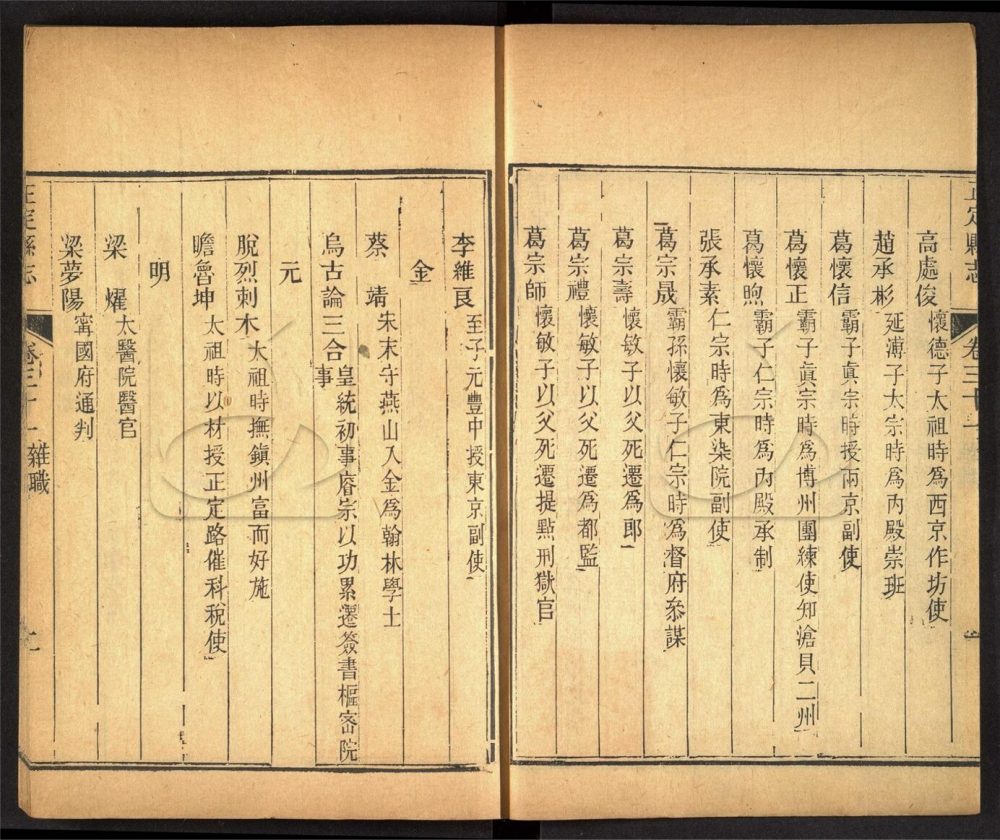 正定縣志
卷三十一
高處俊 懷德子太祖時爲西京作坊使
趙承彬 延溥子太宗時爲內殿崇班
葛懷信 霸子眞宗時授兩京副使
葛懷正 霸子眞宗時爲博州團練使知滄貝二州
葛懷煦 霸子仁宗時爲內殿承制
張承素 仁宗時爲東染院副使
葛宗晟 霸孫懷敏子仁宗時爲督府叅謀
葛宗壽 懷敏子以父死遷爲郎
葛宗禮 懷敏子以父死遷爲都監
葛宗師 懷敏子以父死遷提點刑獄官
李維良 至子元豐中授東京副使
金
蔡靖 朱末守燕山入金爲翰林學士
烏古論三合 皇統初事睿宗以功累遷簽書樞密院事
元
脫烈刺木 太祖時撫鎮州富而好施
瞻魯坤 太祖時以材授正定路催科稅使
明
梁燿 太醫院醫官
梁夢陽 寗國府通判
正定縣志 卷三十一 雜職